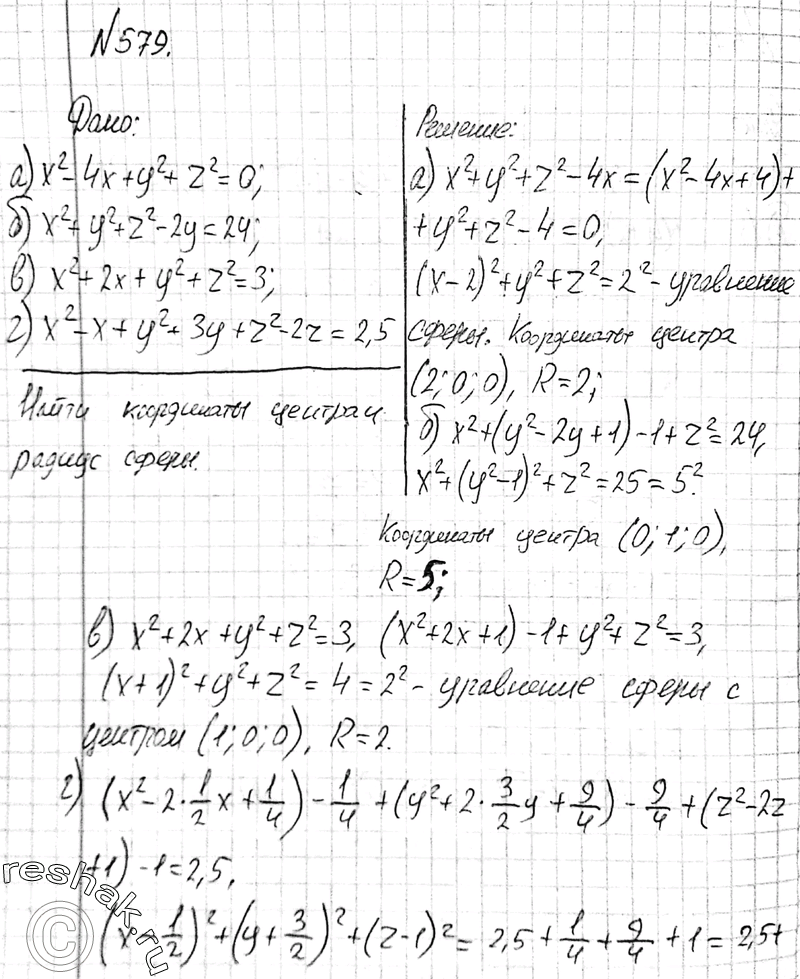 N579.
Дано:
а) x² - 4x + y² + z² = 0;
б) x² + y² + z² - 2y = 24;
в) x² + 2x + y² + z² = 3;
г) x² - x + y² + 3y + z² - 2z = 2,5
Найти координаты центра и
радиус сферы.
Решение:
а) x² + y² + z² - 4x = (x² - 4x + 4) +
+ y² + z² - 4 = 0,
(x - 2)² + y² + z² = 2² - уравнение
сферы. Координаты центра
(2; 0; 0), R = 2;
б) x² + (y² - 2y + 1) - 1 + z² = 24,
x² + (y² - 1)² + z² = 25 = 5².
Координаты центра (0; 1; 0),
R = 5;
в) x² + 2x + y² + z² = 3, (x² + 2x + 1) - 1 + y² + z² = 3,
(x + 1)² + y² + z² = 4 = 2² - уравнение сферы с
центром (1; 0; 0), R = 2.
г) (x² - 2·1/2x + 1/4) - 1/4 + (y² + 2·3/2y + 9/4) - 9/4 + (z² - 2z
+ 1) - 1 = 2,5,
(x - 1/2)² + (y + 3/2)² + (z - 1)² = 2,5 + 1/4 + 9/4 + 1 = 2,5 +
© reshak.ru